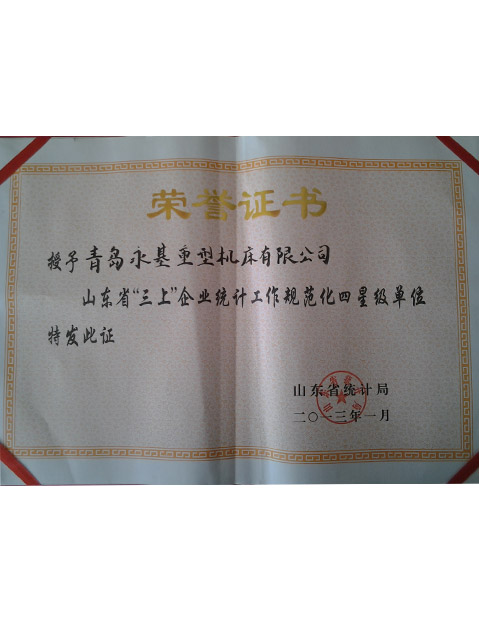 荣誉证书
授予青岛永基重型机床有限公司
山东省“三上”企业统计工作规范化四星级单位
特发此证
山东省统计局
二〇一三年一月